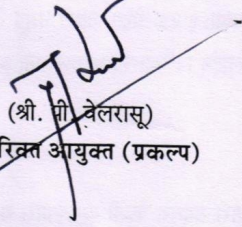 (श्री. पी. वेलरासू)
रिक्त आयुक्त (प्रकल्प)